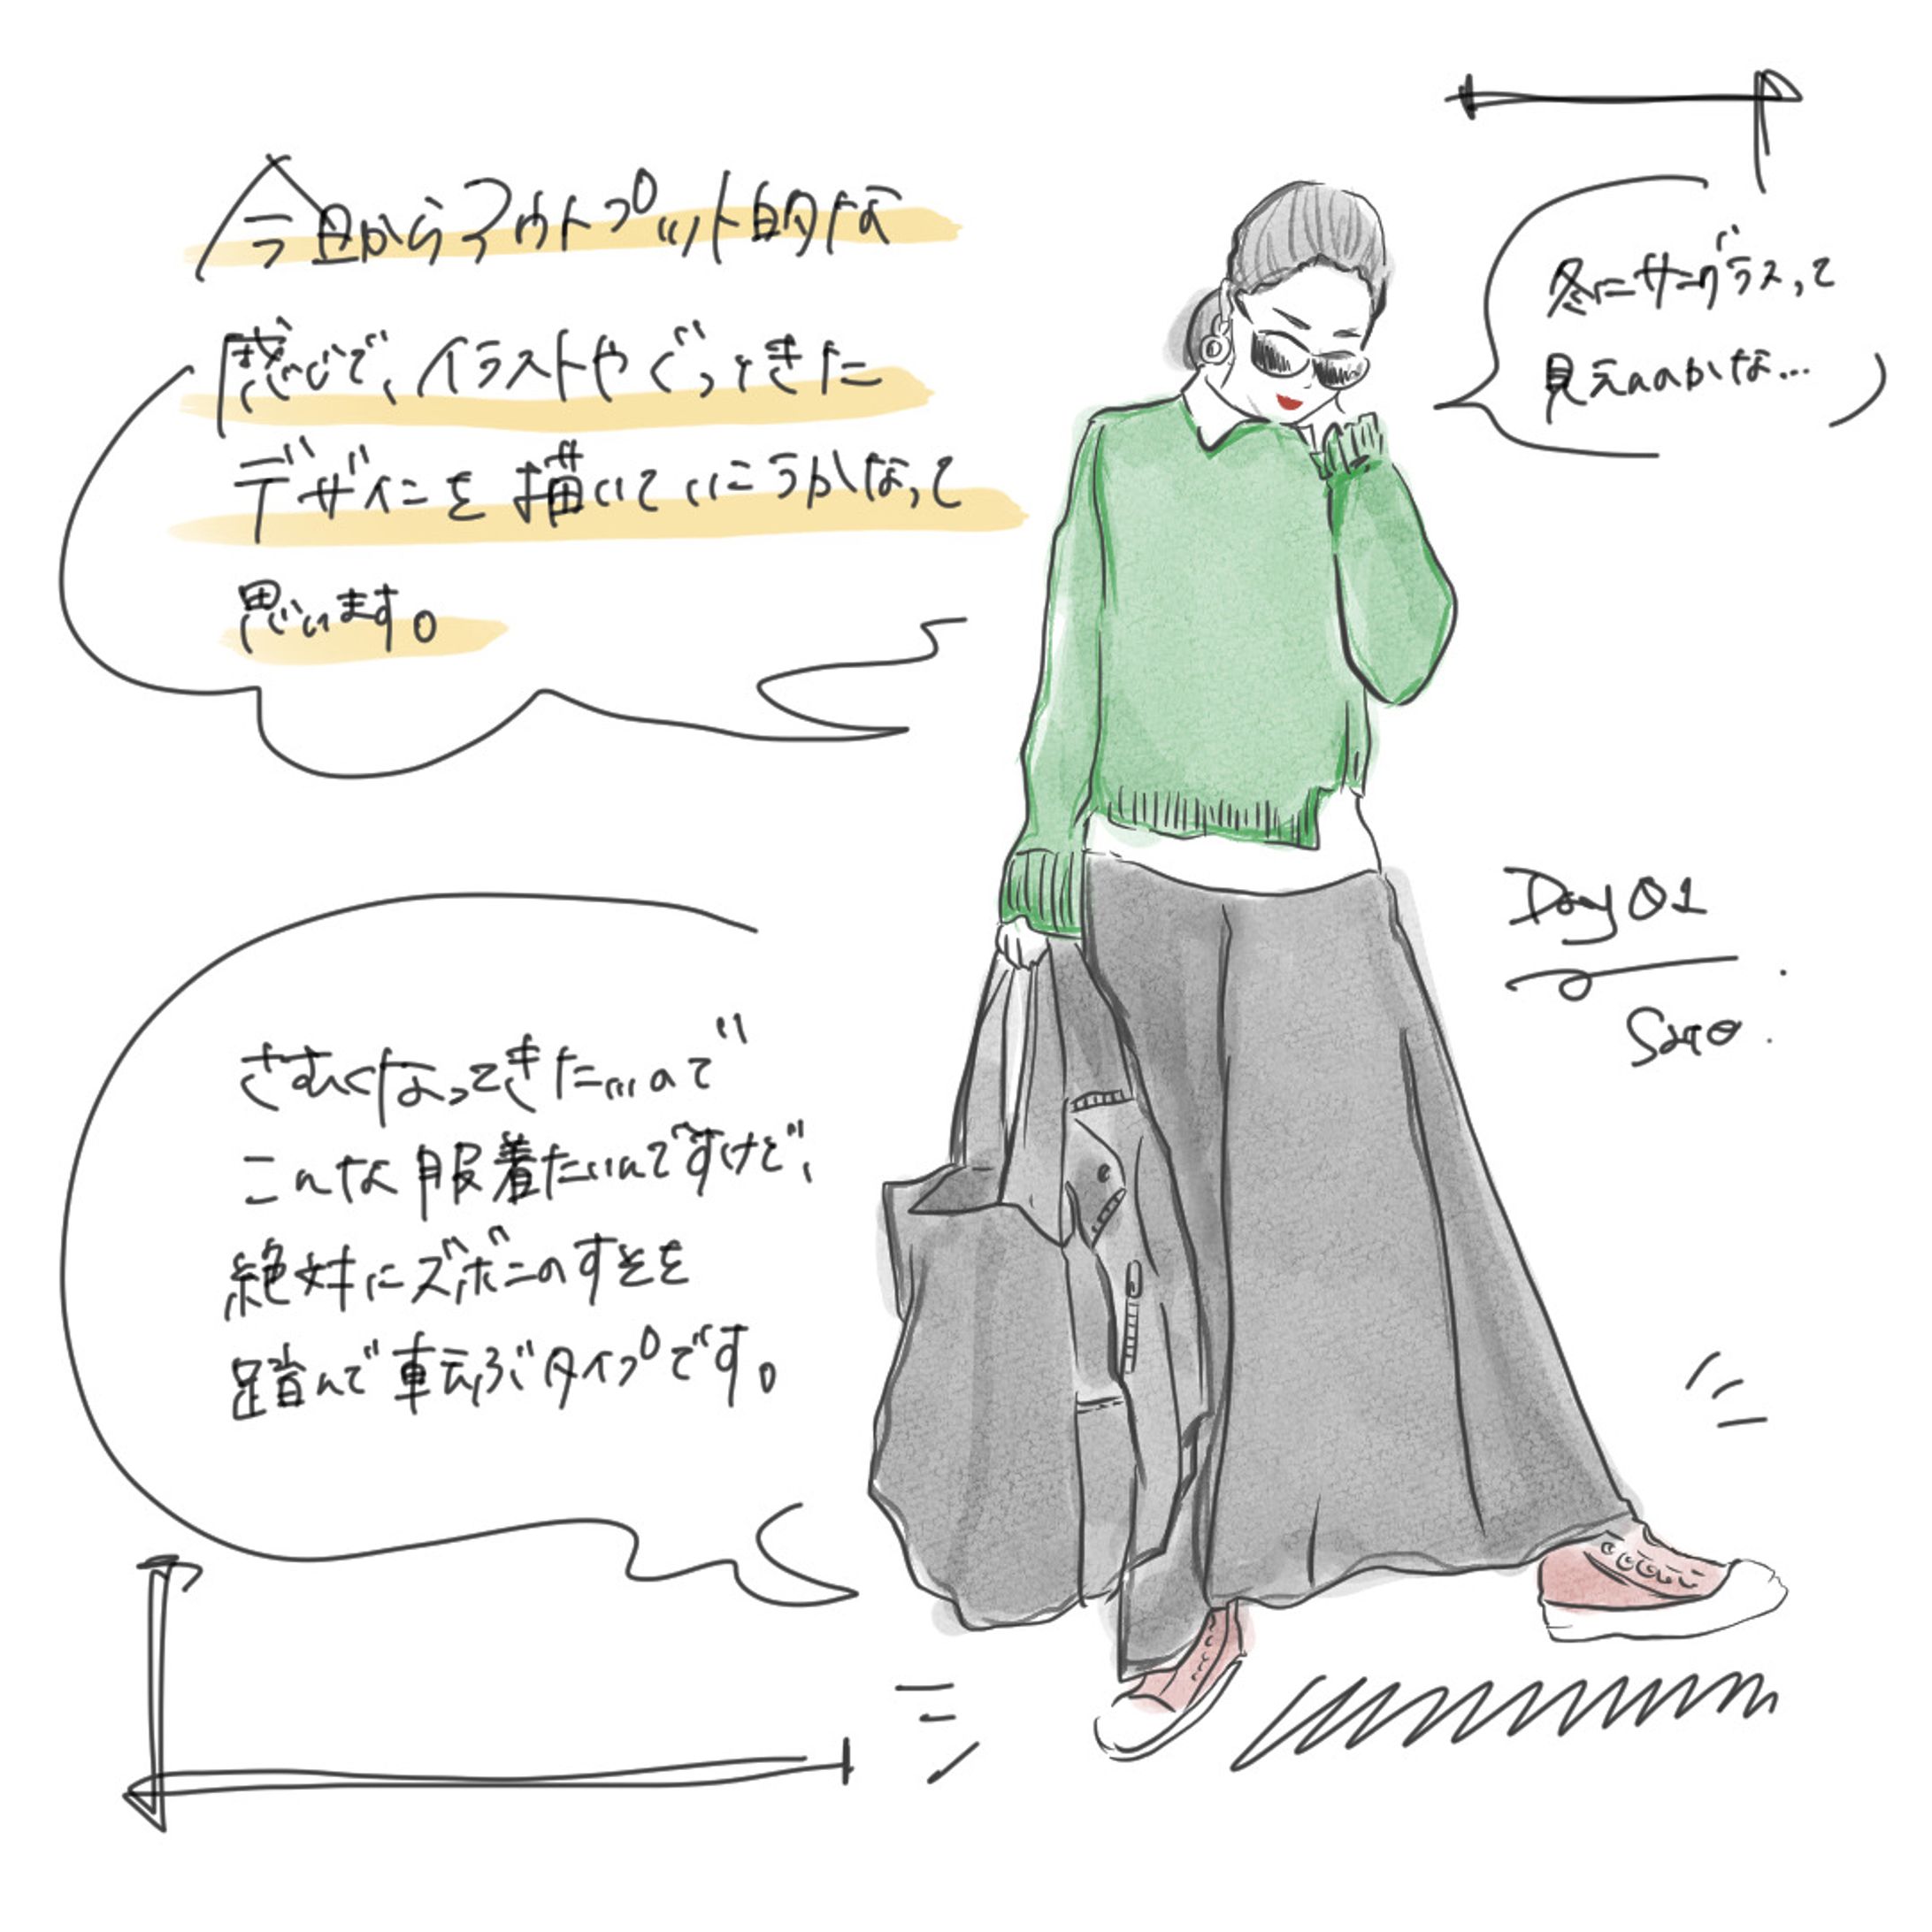 今日からアウトプット的な
感じで、イラストやぐっときた
デザインを描いていこうかなって
思います。
冬にサングラスって
見えんのかな...
さむくなってきた...ので
こんな服着たいんですけど、
絶対にズボンのすそを
踏んで転ぶタイプです。
Day 01
Sato.